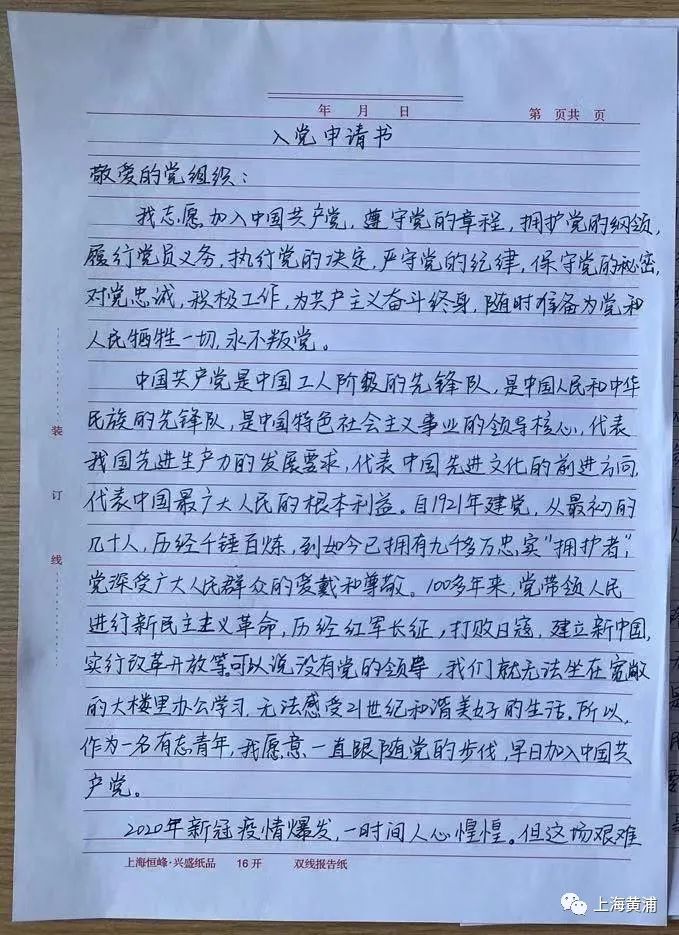 年 月 日
第 页共 页
入党申请书
敬爱的党组织：
我志愿加入中国共产党，遵守党的章程，拥护党的纲领，
履行党员义务，执行党的决定，严守党的纪律，保守党的秘密，
对党忠诚，积极工作，为共产主义奋斗终身，随时准备为党和
人民牺牲一切，永不叛党。
中国共产党是中国工人阶级的先锋队，是中国人民和中华
民族的先锋队，是中国特色社会主义事业的领导核心，代表
我国先进生产力的发展要求，代表中国先进文化的前进方向，
代表中国最广大人民的根本利益。自1921年建党，从最初的
几十人，历经千锤百炼，到如今已拥有九千多万忠实“拥护者”，
党深受广大人民群众的爱戴和尊敬。100多年来，党带领人民
进行新民主主义革命，历经红军长征，打败日寇，建立新中国，
实行改革开放等。可以说没有党的领导，我们就无法坐在宽敞
的大楼里办公学习，无法感受21世纪和谐美好的生活。所以，
作为一名有志青年，我愿意一直跟随党的步伐，早日加入中国共
产党。
2020年新冠疫情爆发，一时间人心惶惶。但这场艰难
装
订
线
上海恒峰·兴盛纸品 16开 双线报告纸
上海黄浦